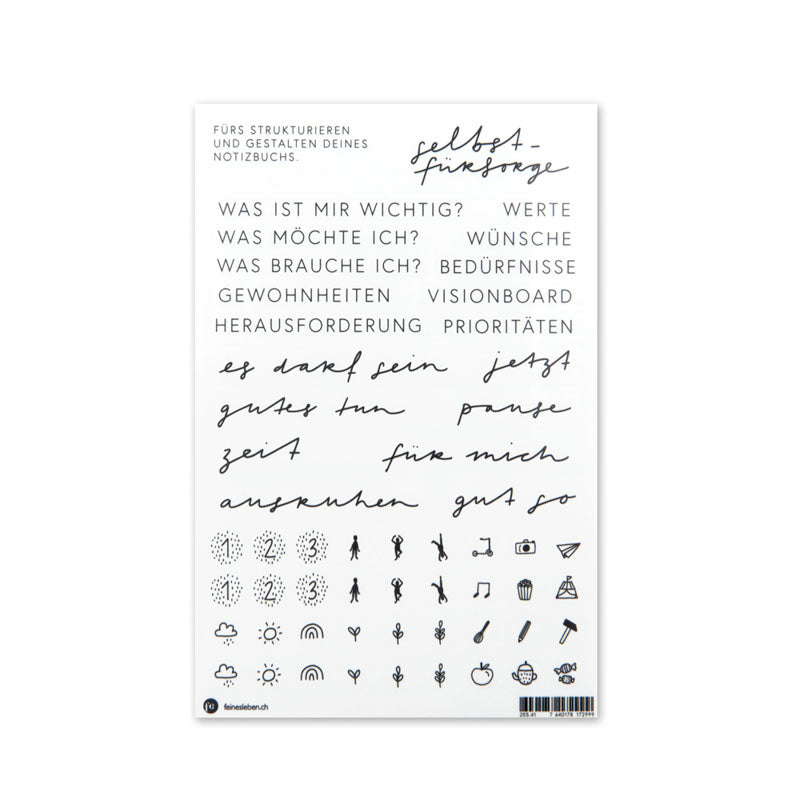 FÜRS STRUKTURIEREN
UND GESTALTEN DEINES
NOTIZBUCHS.
selbst-
fürsorge
WAS IST MIR WICHTIG? WERTE
WAS MÖCHTE ICH? WÜNSCHE
WAS BRAUCHE ICH? BEDÜRFNISSE
GEWOHNHEITEN VISIONBOARD
HERAUSFORDERUNG PRIORITÄTEN
es darf sein jetzt
gutes tun pause
zeit für mich
ausruhen gut so
1 2 3
1 2 3
fe feinesleben.ch
255.41 7 640178 172999